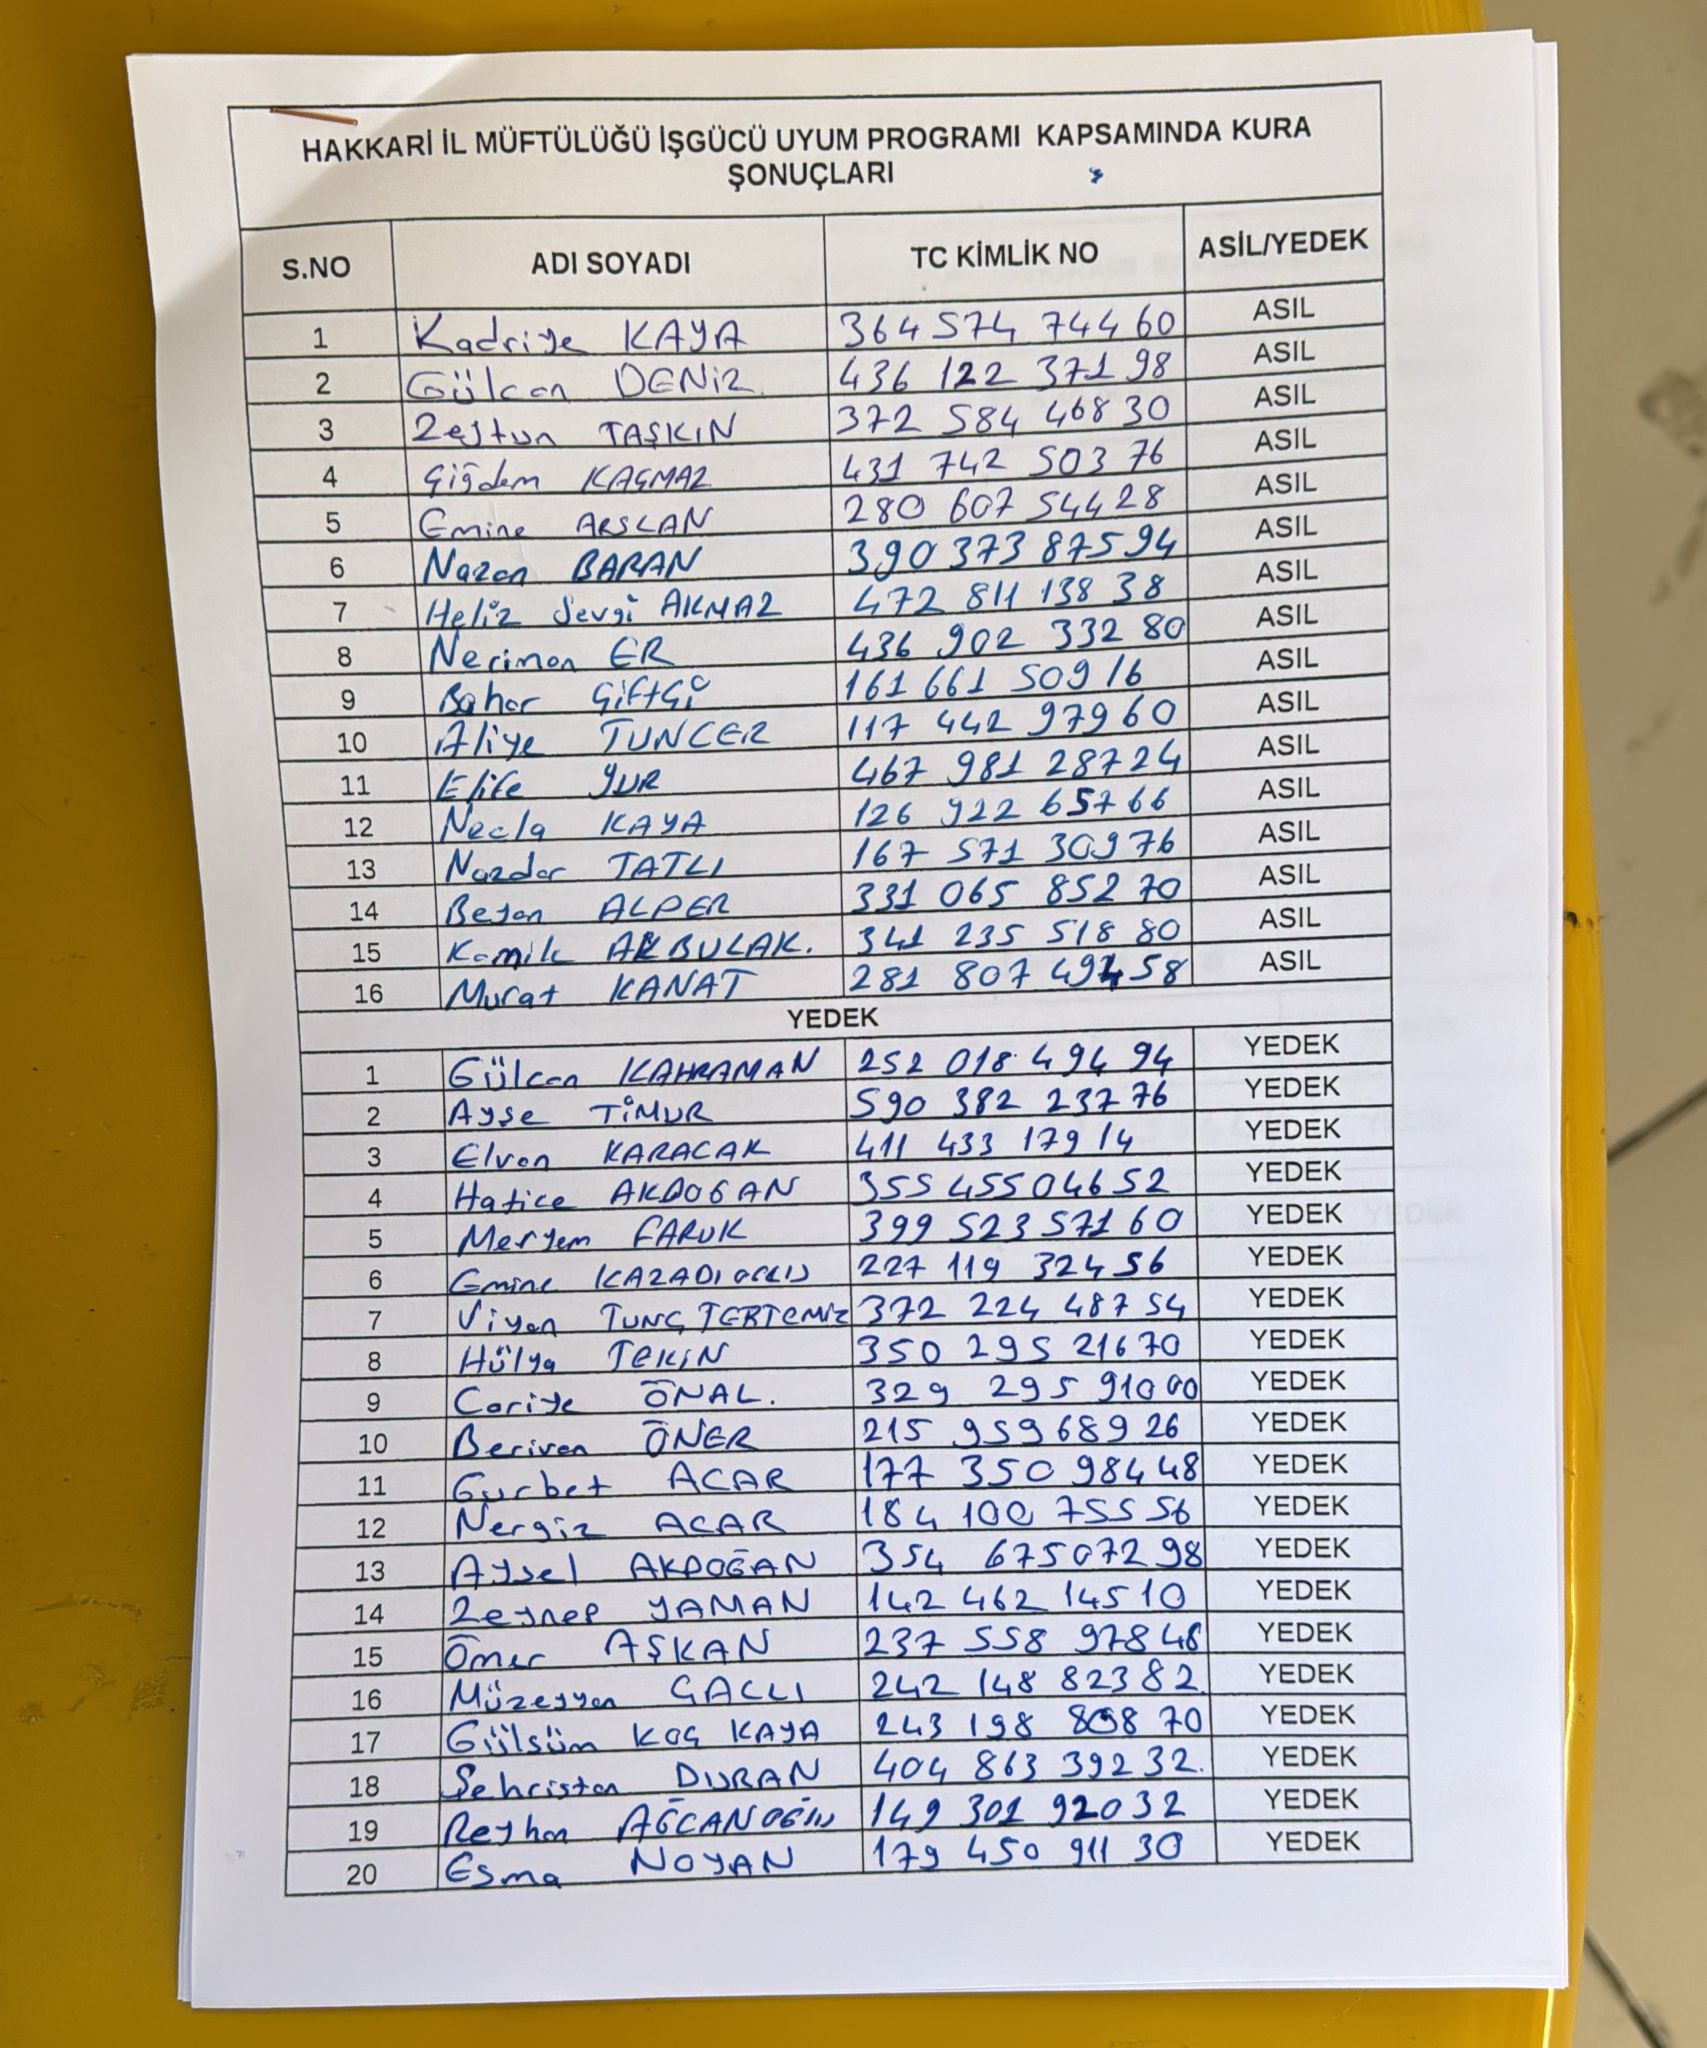 HAKKARİ İL MÜFTÜLÜĞÜ İŞGÜCÜ UYUM PROGRAMI KAPSAMINDA KURA
ŞONUÇLARI
S.NO ADI SOYADI TC KİMLİK NO ASİL/YEDEK
1 Kadriye KAYA 364 574 744 60 ASIL
2 Gülcan DENİZ. 436 122 371 98 ASIL
3 Zeytun TAŞKIN 372 584 468 30 ASIL
4 Çiğdem KAÇMAZ 431 742 503 76 ASIL
5 Emine ARSLAN 280 607 544 28 ASIL
6 Nazan BARAN 390 373 875 94 ASIL
7 Heliz Sevgi AKMAZ 472 811 138 38 ASIL
8 Neriman ER 436 902 332 80 ASIL
9 Bahar ÇİFTÇİ 161 661 509 16 ASIL
10 Aliye TUNCER 117 442 979 60 ASIL
11 Elife YUR 467 981 287 24 ASIL
12 Necla KAYA 126 922 657 66 ASIL
13 Nazdar TATLI 167 571 309 76 ASIL
14 Beyan ALPER 331 065 852 70 ASIL
15 Kamile AKBULAK. 341 235 518 80 ASIL
16 Murat KANAT 281 807 494 58 ASIL
YEDEK
1 Gülcan KAHRAMAN 252 018 494 94 YEDEK
2 Ayşe TİMUR 590 382 237 76 YEDEK
3 Elvan KARACAK 411 433 179 14 YEDEK
4 Hatice AKDOGAN 355 455 046 52 YEDEK
5 Meryem FARUK 399 523 571 60 YEDEK
6 Emine 227 119 324 56 YEDEK
7 Viyan TUNÇ TERTEMİZ 372 224 487 54 YEDEK
8 Hülya TEKİN 350 295 216 70 YEDEK
9 Cariye ÖNAL. 329 295 910 00 YEDEK
10 Berivan ÖNER 215 959 689 26 YEDEK
11 Gurbet ACAR 177 350 984 48 YEDEK
12 Nergiz ACAR 184 100 755 56 YEDEK
13 Aysel AKDOĞAN 354 675 072 98 YEDEK
14 Zeynep YAMAN 142 462 145 10 YEDEK
15 Ömer AŞKAN 237 558 978 46 YEDEK
16 Müzeyyen ÇAÇLI 242 148 823 82. YEDEK
17 Gülsüm KOÇ KAYA 243 198 898 70 YEDEK
18 Şehristan DURAN 404 863 392 32. YEDEK
19 Reyhan AĞCANOĞLU 149 301 920 32 YEDEK
20 Esma NOYAN 179 450 911 30 YEDEK